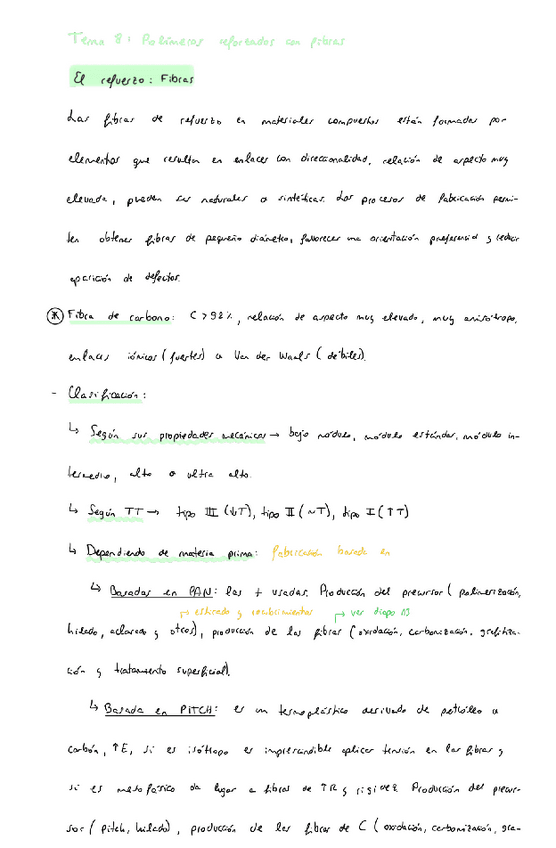 Tema 8: Polímeros reforzados con fibras
El refuerzo: Fibras
Las fibras de refuerzo en materiales compuestos están formadas por
elementos que resultan en enlaces con direccionalidad, relación de aspecto muy
elevada, pueden ser naturales o sintéticas. Los procesos de fabricación permi-
ten obtener fibras de pequeño diámetro, favorecer una orientación preferencial y reducir
aparición de defectos.
* Fibra de carbono: C > 92%, relación de aspecto muy elevado, muy anisótropo,
enlaces iónicos (fuertes) o Van der Waals (débiles).
- Clasificación:
↳ Según sus propiedades mecánicas → bajo módulo, módulo estándar, módulo in-
termedio, alto o ultra alto.
↳ Según TT → tipo III (↓T), tipo II (~T), tipo I (↑T)
↳ Dependiendo de materia prima: fabricación basada en
↳ Basadas en PAN: las + usadas. Producción del precursor (polimerización,
→ estirado y recubrimientos → ver diapo 13
hilado, aclarado y otros), producción de las fibras (oxidación, carbonización, grafitiza-
ción y tratamiento superficial).
↳ Basada en PITCH: es un termoplástico derivado de petróleo o
carbón, ↑E, si es isótropo es imprescindible aplicar tensión en las fibras y
si es mesofásico da lugar a fibras de ↑R y rigidez. Producción del precur-
sor (pitch, hilado), producción de las fibras de C (oxidación, carbonización, gra-